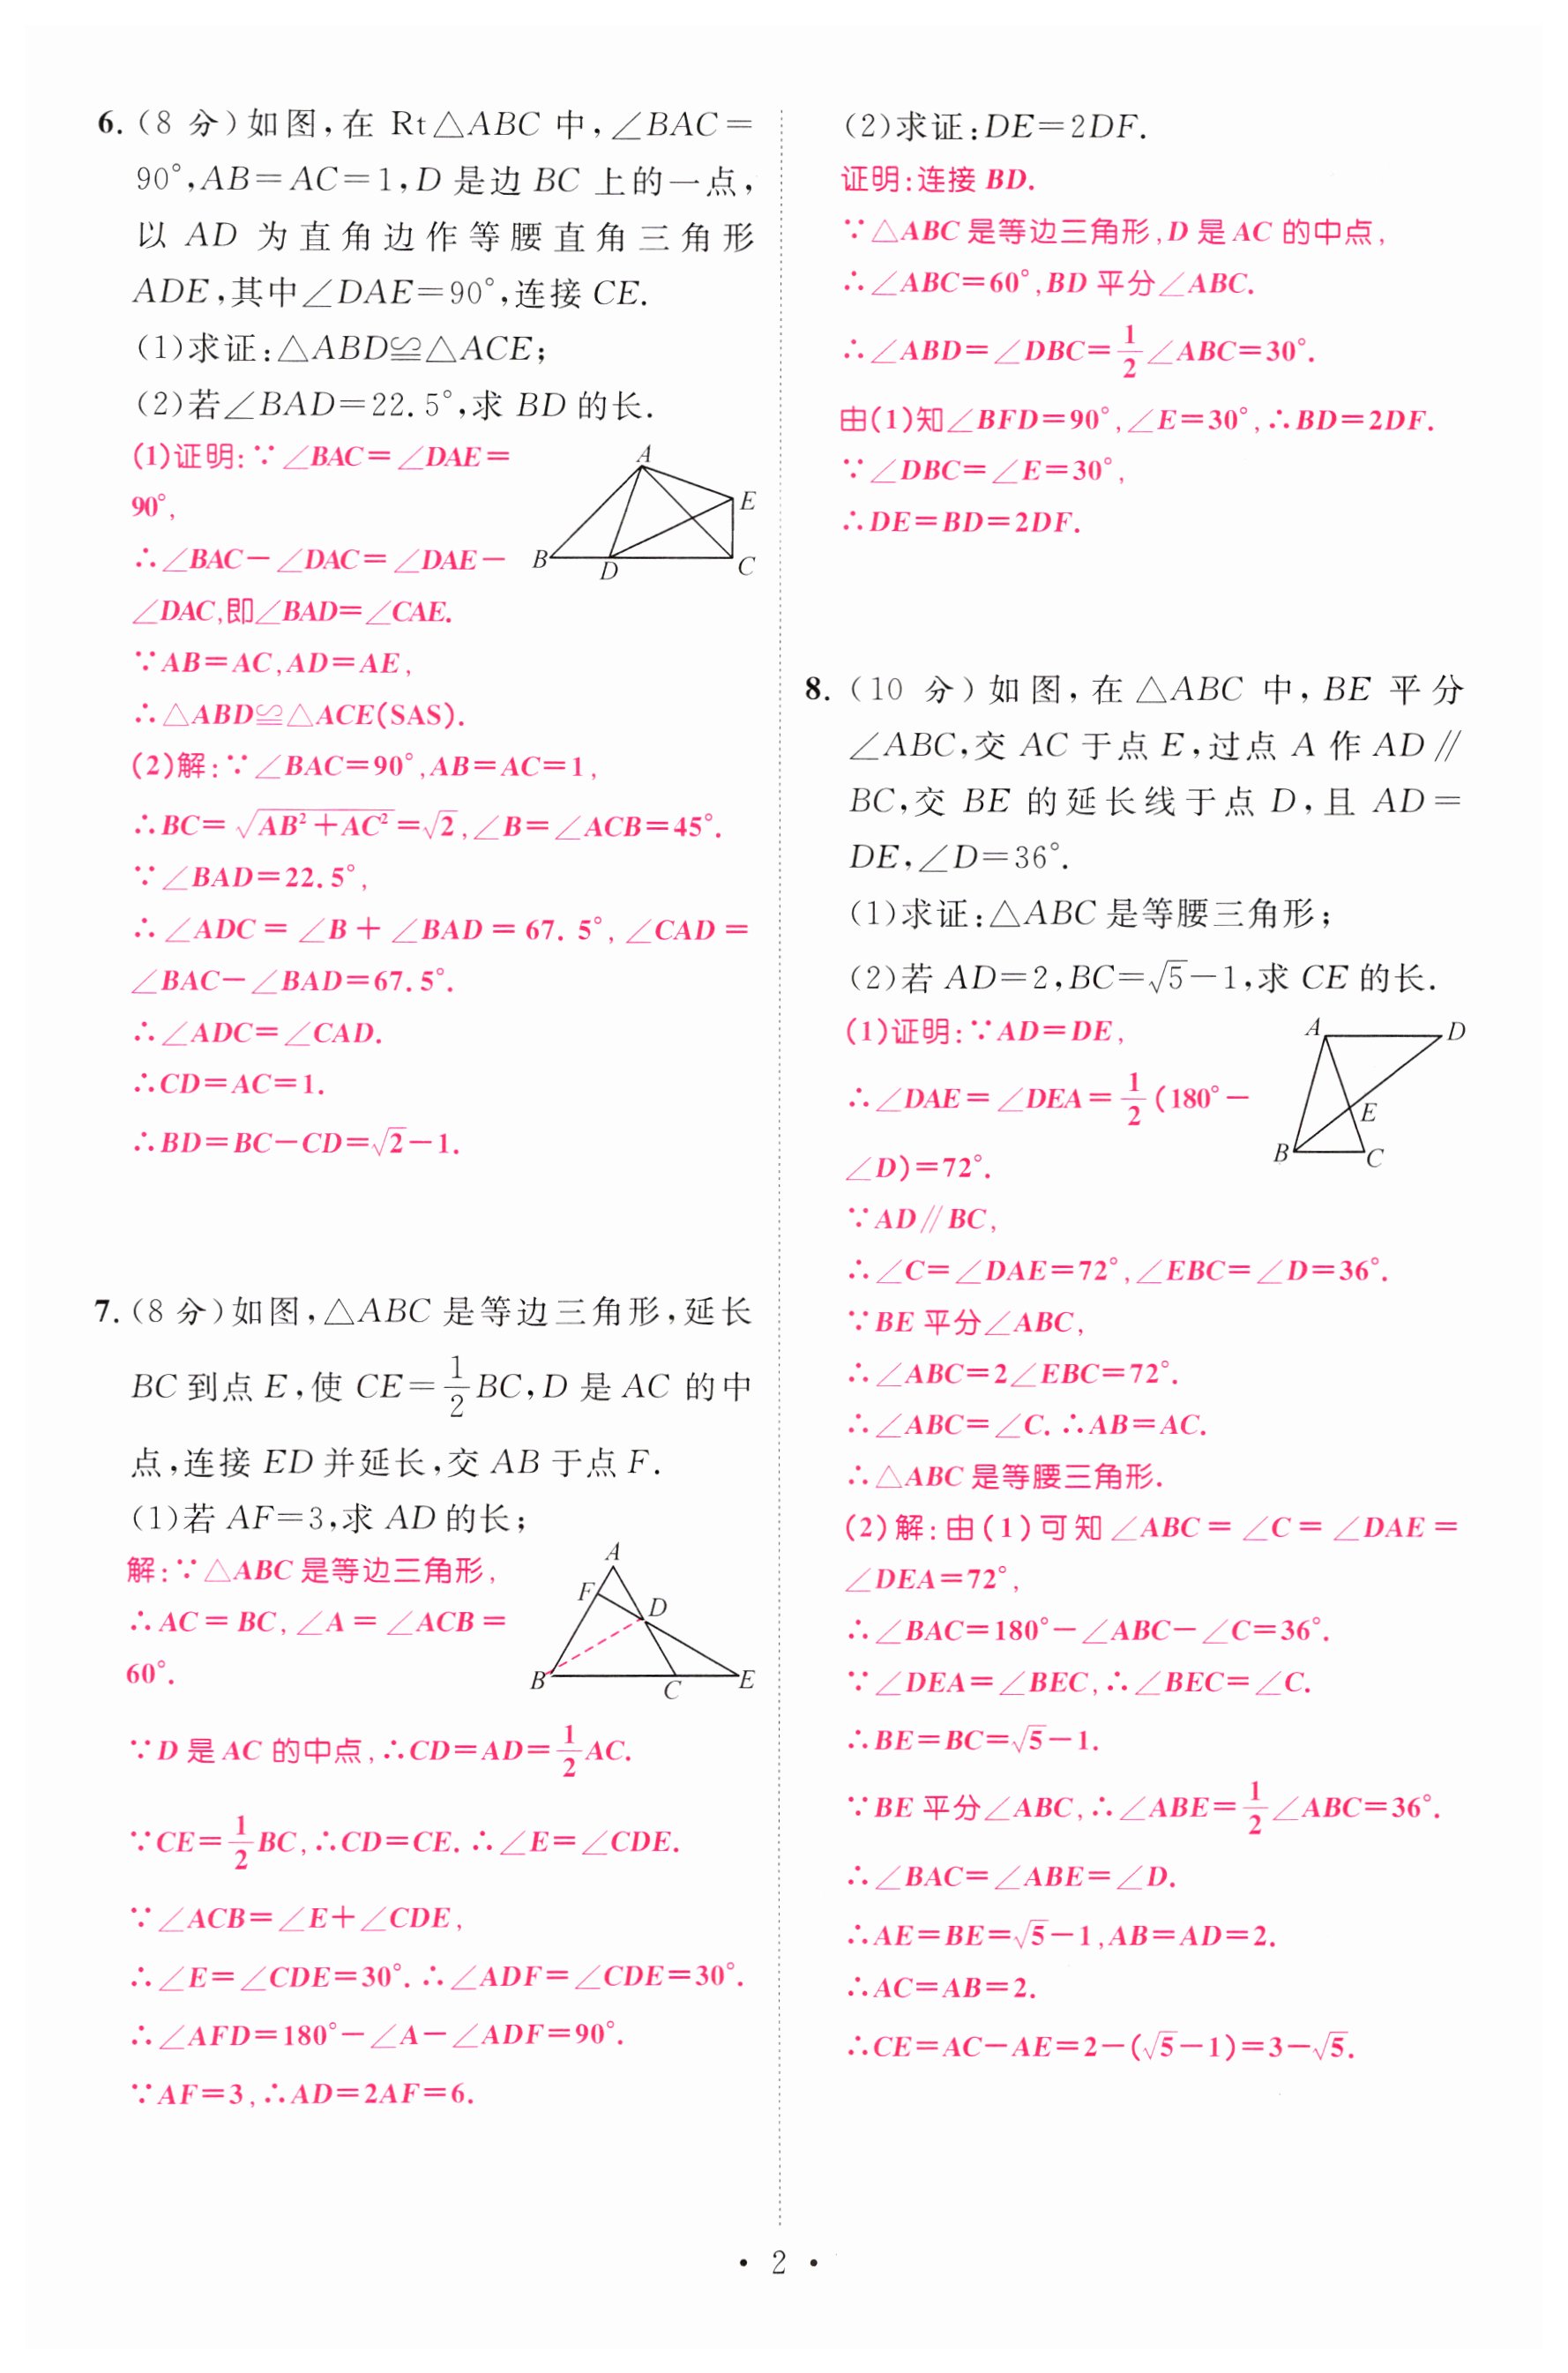 6.(8 分)如图,在 Rt△ABC 中,∠BAC=
90°,AB=AC=1,D 是边 BC 上的一点,
以 AD 为直角边作等腰直角三角形
ADE,其中∠DAE=90°,连接 CE.
(1)求证:△ABD≌△ACE;
(2)若∠BAD=22.5°,求 BD 的长.
(1)证明:∵∠BAC=∠DAE=
90°,
∴∠BAC-∠DAC=∠DAE-
∠DAC,即∠BAD=∠CAE.
∵AB=AC,AD=AE,
∴△ABD≌△ACE(SAS).
A
E
B
D
C
(2)解:∵∠BAC=90°,AB=AC=1,
∴BC=√(AB²+AC²)=√2,∠B=∠ACB=45°.
∵∠BAD=22.5°,
∴∠ADC=∠B+∠BAD=67.5°,∠CAD=
∠BAC-∠BAD=67.5°.
∴∠ADC=∠CAD.
∴CD=AC=1.
∴BD=BC-CD=√2-1.
7.(8 分)如图,△ABC 是等边三角形,延长
BC 到点 E,使 CE=1/2BC,D 是 AC 的中
点,连接 ED 并延长,交 AB 于点 F.
(1)若 AF=3,求 AD 的长;
解:∵△ABC 是等边三角形,
∴AC=BC,∠A=∠ACB=
60°.
A
F
D
B
C
E
∵D 是 AC 的中点,∴CD=AD=1/2AC.
∵CE=1/2BC,∴CD=CE.∴∠E=∠CDE.
∵∠ACB=∠E+∠CDE,
∴∠E=∠CDE=30°.∴∠ADF=∠CDE=30°.
∴∠AFD=180°-∠A-∠ADF=90°.
∵AF=3,∴AD=2AF=6.
(2)求证:DE=2DF.
证明:连接 BD.
∵△ABC 是等边三角形,D 是 AC 的中点,
∴∠ABC=60°,BD 平分∠ABC.
∴∠ABD=∠DBC=1/2∠ABC=30°.
由(1)知∠BFD=90°,∠E=30°,∴BD=2DF.
∵∠DBC=∠E=30°,
∴DE=BD=2DF.
8.(10 分)如图,在△ABC 中,BE 平分
∠ABC,交 AC 于点 E,过点 A 作 AD∥
BC,交 BE 的延长线于点 D,且 AD=
DE,∠D=36°.
(1)求证:△ABC 是等腰三角形;
(2)若 AD=2,BC=√5-1,求 CE 的长.
(1)证明:∵AD=DE,
∴∠DAE=∠DEA=1/2(180°-
∠D)=72°.
A
D
E
B
C
∵AD∥BC,
∴∠C=∠DAE=72°,∠EBC=∠D=36°.
∵BE 平分∠ABC,
∴∠ABC=2∠EBC=72°.
∴∠ABC=∠C.∴AB=AC.
∴△ABC 是等腰三角形.
(2)解:由(1)可知∠ABC=∠C=∠DAE=
∠DEA=72°,
∴∠BAC=180°-∠ABC-∠C=36°.
∵∠DEA=∠BEC,∴∠BEC=∠C.
∴BE=BC=√5-1.
∵BE 平分∠ABC,∴∠ABE=1/2∠ABC=36°.
∴∠BAC=∠ABE=∠D.
∴AE=BE=√5-1,AB=AD=2.
∴AC=AB=2.
∴CE=AC-AE=2-(√5-1)=3-√5.
• 2 •